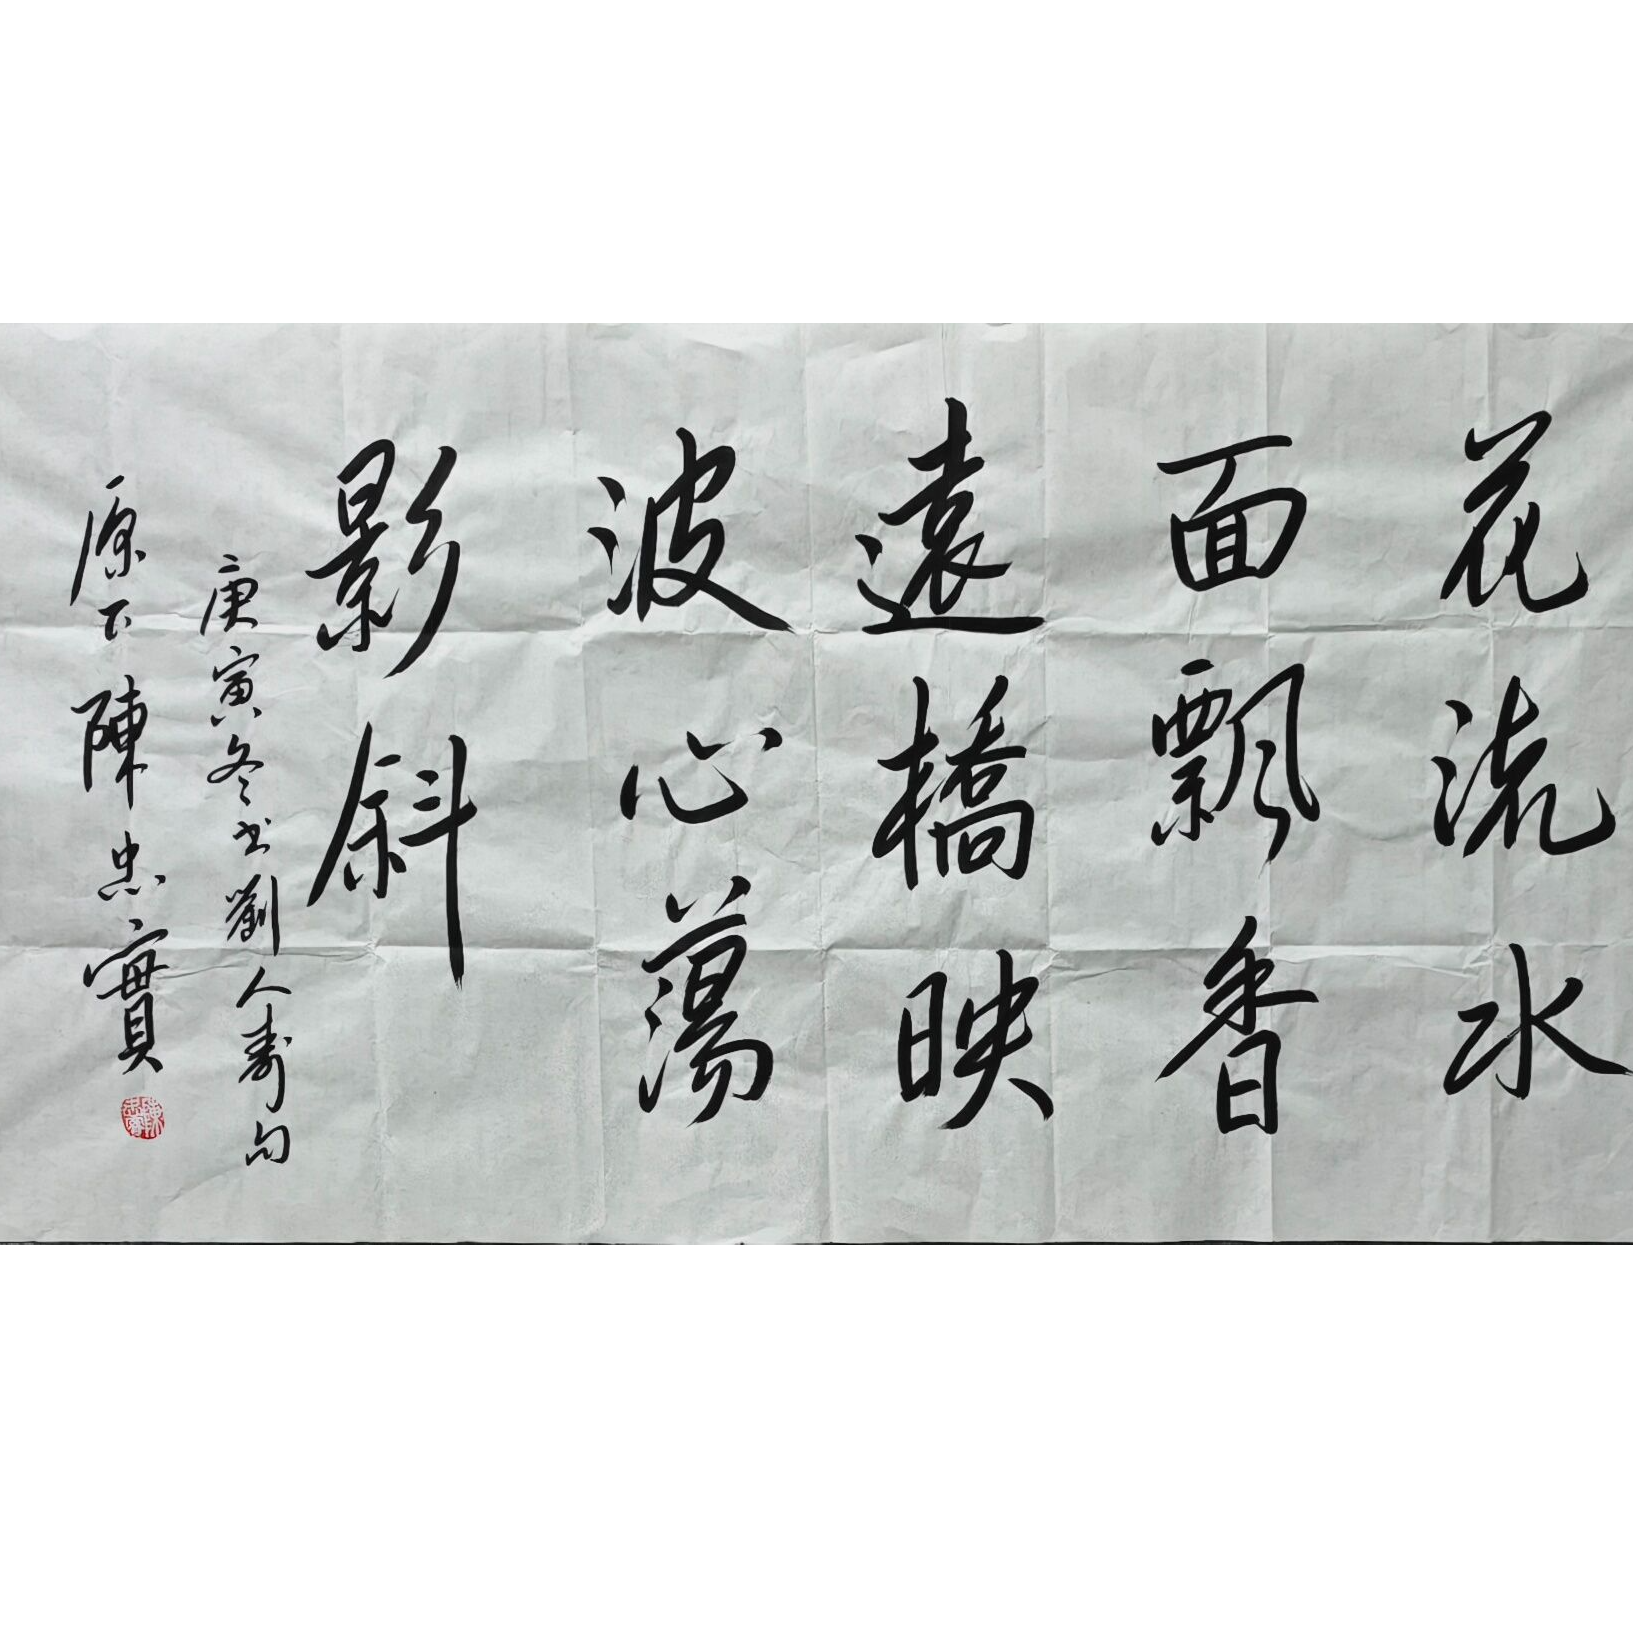 花流水
面飄香
遠橋映
波心蕩
影斜
庚寅冬書劉人壽句
原下陳忠實
陳忠實